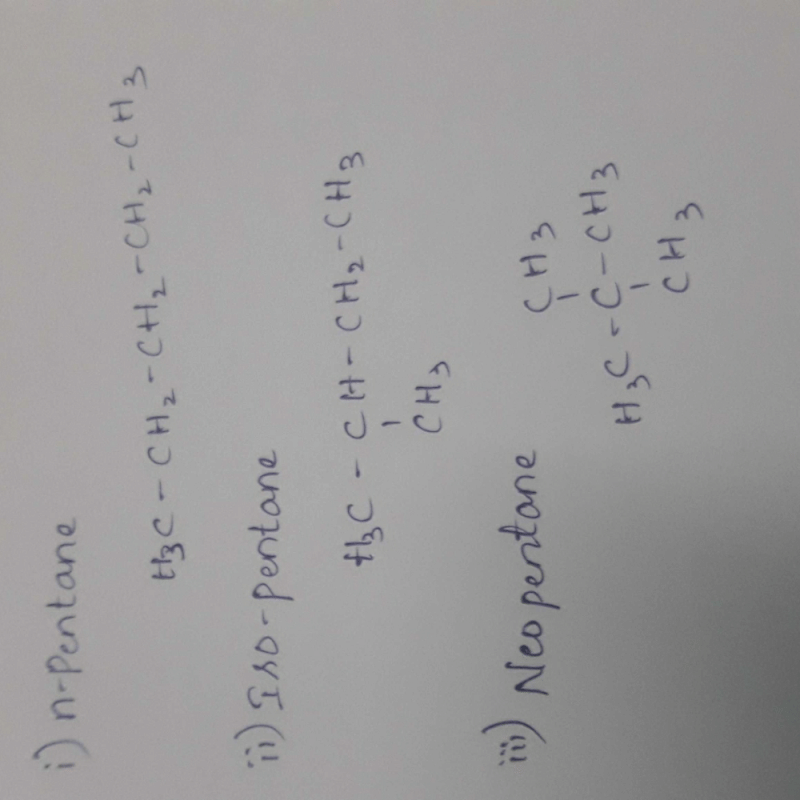 i) n-Pentane
H3C-CH2-CH2-CH2-CH3
ii) Iso-pentane
H3C-CH-CH2-CH3
CH3
iii) Neopentane
CH3
H3C-C-CH3
CH3